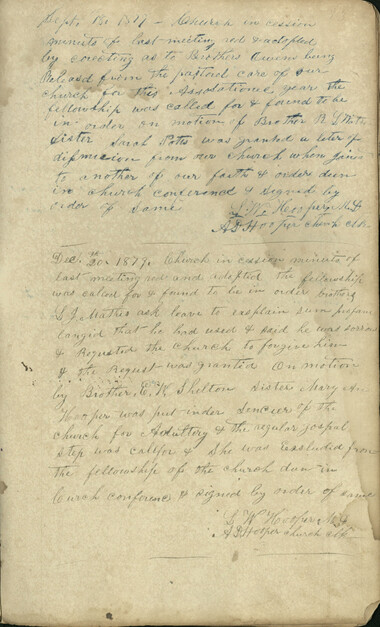 Sept. 13. 1879 - Church in cession
minits of last meeting red & adopted
by corecting as to Brothers Owens being
Relised from the pastoral care of our
church for this Assosational year the
fellowship was called for & found to be
in order on motion of Brother R. G.
Sister Sarah Potts was granted a leter of
dismission from our church when joined
to another of our faith & order dun
in church conference & signed by
order of same
L. W. Hooper, Md
A D Hooper church clk.
Dec. 20. 1879. Church in cession minits of
last meeting red and adopted the fellowship
was called for & found to be in order brother
L J Mathis ask leave to explain sum profain
langid that he had used & said he was sorrow
& Requsted the church to forgive him
& the Requst was granted On motion
by Brother E. K. Shelton Sister Mary An
Hooper was put under Sencur of the
church for Adultery & the regular gospal
step was calif for & She was Exscluded from
the fellowship of the church dun in
Curch conference & signed by order of same
L W Hooper, Md
A D Hooper church clk